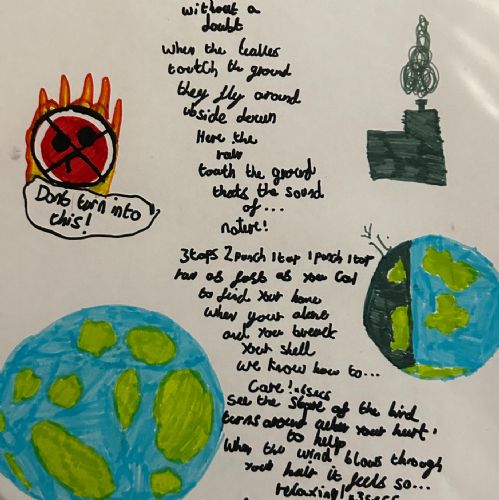 without a
doubt
when the leaves
toutch the ground
they fly around
upside down
Here the
rain
touth the ground
thats the sound
of...
nature!
Dont turn into
this!
3 taps 2 punch 1 tap 1 punch 1 tap
run as fast as you can
to find your home
when your alone
and you break
your shell
we know how to...
Care!
See the of the bird
turns around when your hurt
to help
When the wind blows through
your hair it feels so...
relaxing!